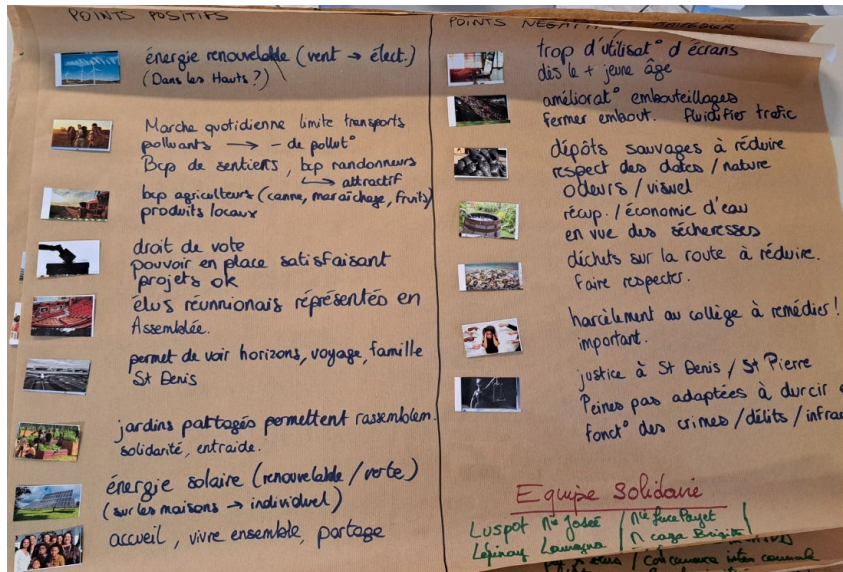 POINTS POSITIFS
énergie renouvelable (vent → élect.)
(Dans les Hauts ?)
Marche quotidienne limite transports
polluants → - de pollut°
Bcp de sentiers, bcp randonneurs
↳ attractif
bcp agriculteurs (canne, maraîchage, fruits)
produits locaux
droit de vote
pouvoir en place satisfaisant
projets ok
élus réunnionais réprésentés en
Assemblée.
permet de voir horizons, voyage, famille
St Denis
jardins partagés permettent rassemblem.
solidarité, entraide.
énergie solaire (renouvelable / verte)
(sur les maisons → individuel)
accueil, vivre ensemble, partage
POINTS
trop d'utilisat° d'écrans
dès le + jeune âge
améliorat° embouteillages
fermer embout. fluidifier trafic
dépôts sauvages à réduire
respect des dates / nature
odeurs / visuel
récup. / économie d'eau
en vue des sécheresses
déchets sur la route à réduire.
Faire respecter.
harcèlement au collège à remédier !
important.
justice à St Denis / St Pierre
Peines pas adaptées à durcir
fonct° des crimes / délits / infra
Equipe Solidarie
Luspot Mie Josée / Mie Luce Payet
Lépinay / Brigitte